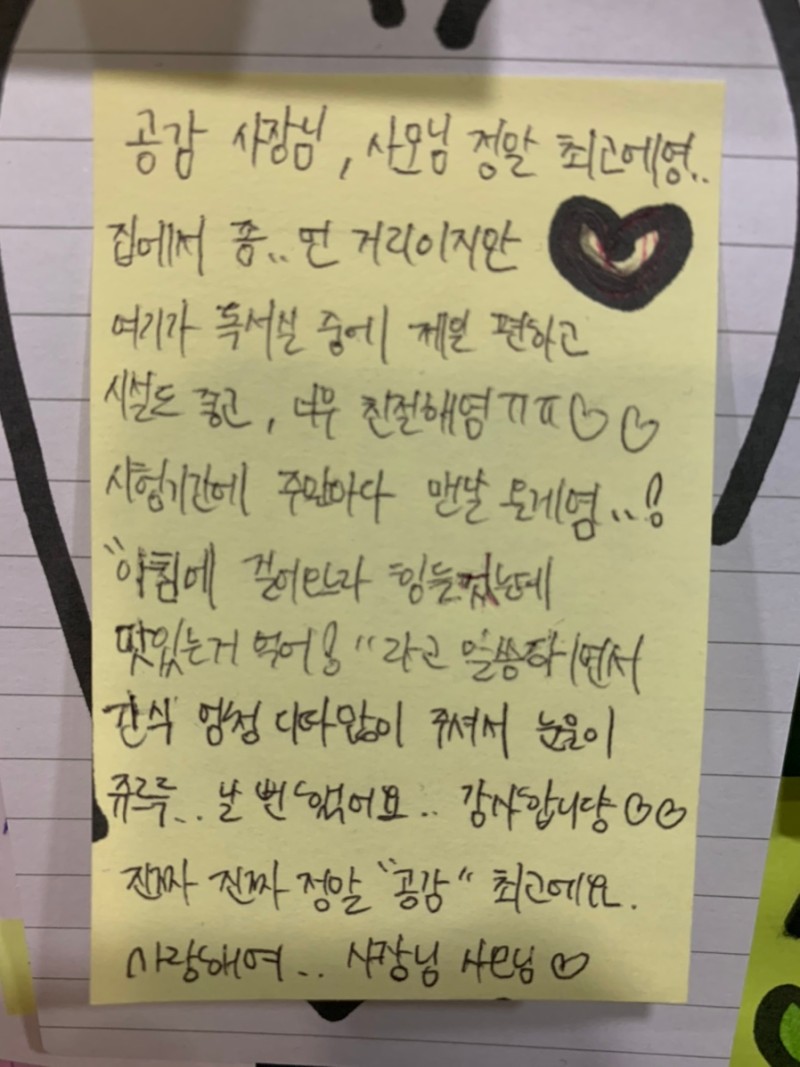 공감 사장님, 사모님 정말 최고에영..
집에서 쫌.. 먼 거리이지만
여기가 독서실 중에 제일 편하고
시설도 좋고, 너무 친절해염ㅠㅠ♡♡
시험기간에 주말마다 맨날 올게염..!
"아침에 걸어오느라 힘들었는데
맛있는거 먹어!"라고 말씀하시면서
간식 엄청 디따많이 주셔서 눈물이
쥬르륵.. 날 뻔 했어요.. 감사합니당♡♡
진짜 진짜 정말 "공감" 최고에요.
사랑해여.. 사장님 사모님♡